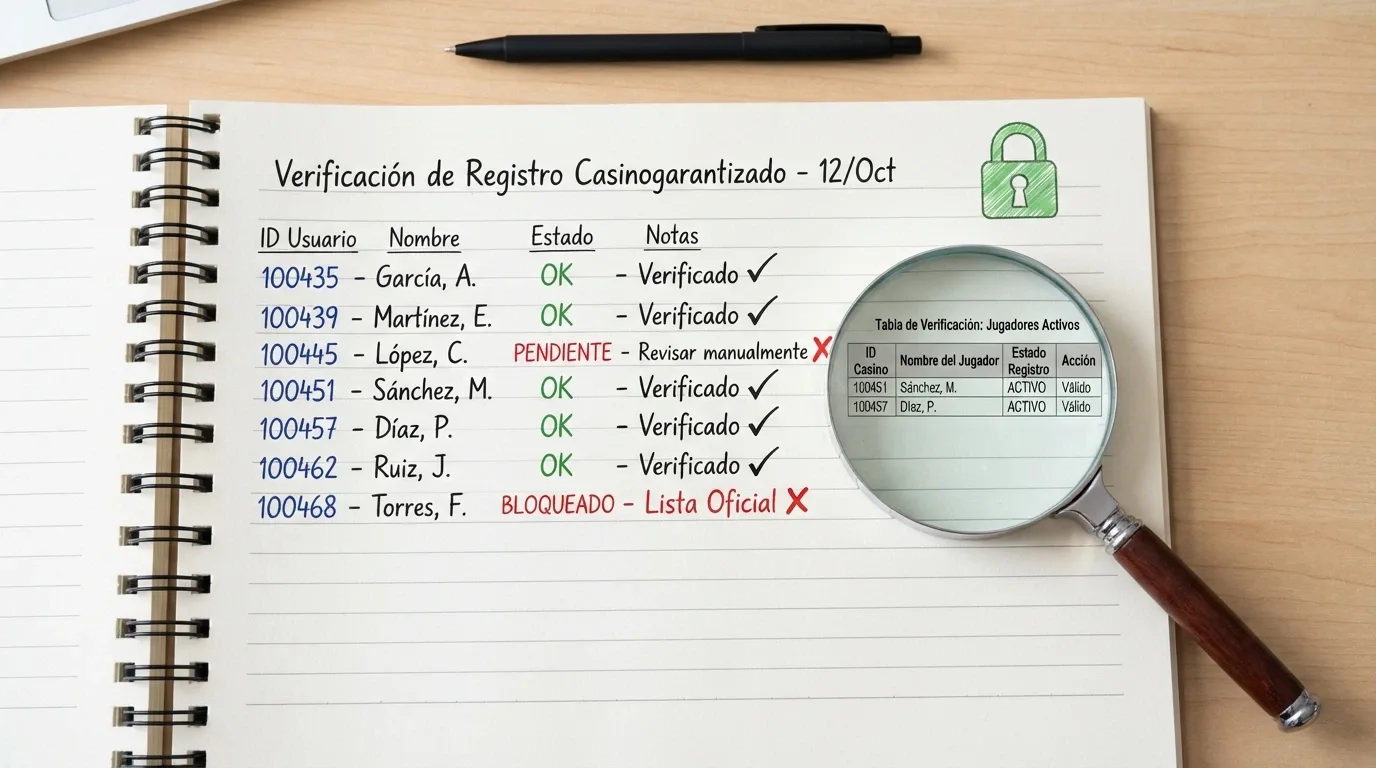 Verificación de Registro Casinogarantizado - 12/Oct
ID Usuario Nombre Estado Notas
100435 - García, A. OK - Verificado ✓
100439 - Martínez, E. OK - Verificado ✓
100445 - López, C. PENDIENTE - Revisar manualmente ✗
100451 - Sánchez, M. OK - Verificado ✓
100457 - Díaz, P. OK - Verificado ✓
100462 - Ruiz, J. OK - Verificado ✓
100468 - Torres, F. BLOQUEADO - Lista Oficial ✗
Tabla de Verificación: Jugadores Activos
ID Casino Nombre del Jugador Estado Registro Acción
1004S1 Sánchez, M. ACTIVO Válido
1004S7 Dlaz, P. ACTIVO Válido